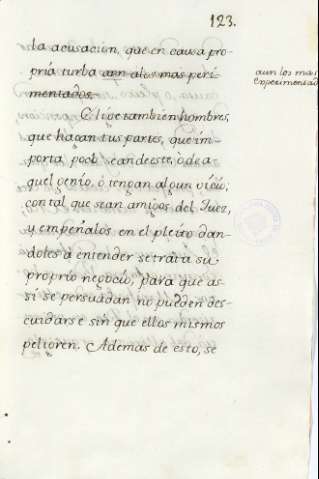 123.
la acusacion, que en causa pro-
pria turba aun alos mas peri
mentados.
aun los mas
experimentad
Elige tambien hombres,
que hagan tus partes, que im-
porta poco sean de este, ò de a-
quel genio, ò tengan algun vicio,
con tal que sean amigos del Juez,
y empeñalos en el pleito dan-
doles à entender se trata su
proprio negocio, para que as-
si se persuadan no pueden des-
cuidarse sin que ellos mismos
peligren. Ademas de esto, se